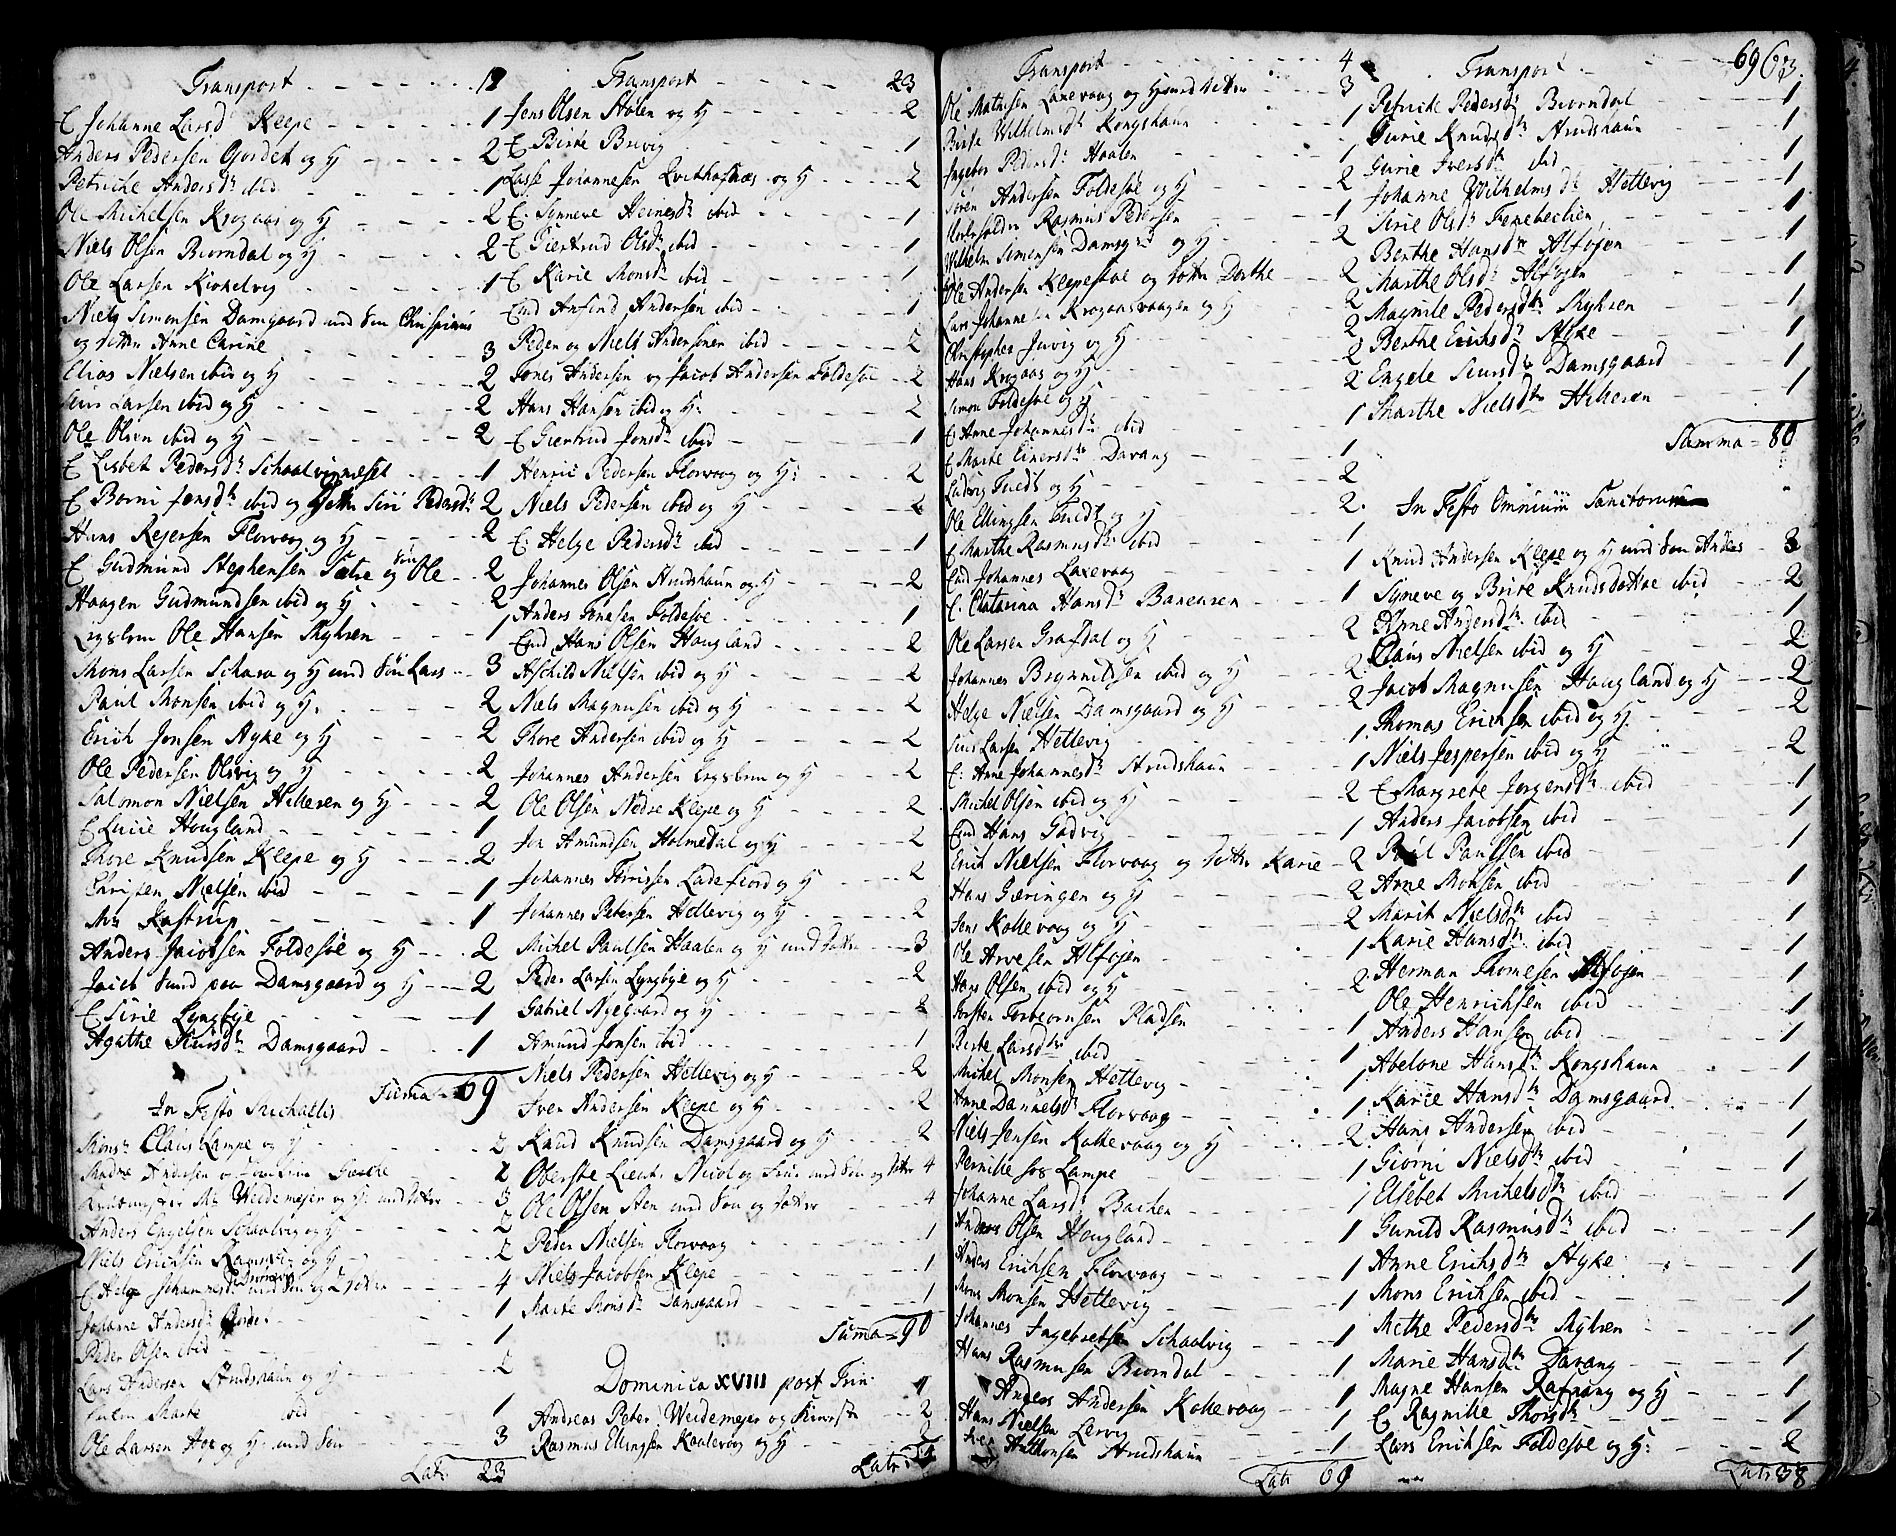 Transport - - - - - - 12
E Johanne Larsdr Kleppe - - - - - 1
Anders Pedersen Gjordet og Hj - - - - 2
Petriche Andersdr ibid - - - - 1
Ole Michelsen Krogaas og Hj - - - 2
Niels Olsen Biorndal og Hj - - - - 2
Ole Larsen Kirkelvig - - - - - 1
Niels Simonsen Damgaard med Søn
og dotter Anne Carine - - - - 3
Elias Nielsen ibid og Hj - - - - 2
Larsen ibid og Hj - - - - - 2
Ole Olsen ibid og Hj - - - - - 2
E Lisbet Pedersdr Schaalvignesset - - - 1
E Borni Jensdr ibid og Dotter Siri Pedersdr 2
Hans Rejersen Florvaag og Hj - - - 2
E Gudmund Stephensen Sætre og Søn Ole - - 2
Haagen Gudmundsen ibid og Hj - - - 2
Ole Hansen Myhren - - - 1
Mons Larsen Schara og Hj med Søn Lars - - 3
Paul Monsen ibid og Hj. - - - - 2
Erich Jonsen Hyke og Hj - - - - 2
Ole Pedersen Olsvig og Hj - - - - 2
Salomon Nielsen Hilleren og Hj - - - 2
E Lucie Hougland - - - - - 1
Thore Knudsen Klepe og Hj - - - - 2
Christen Nielsen ibid - - - - 1
Mr Kastrup - - - - - 1
Anders Jacobsen Foldesøe og Hj - - - 2
Jacob Sund paa Damsgaard og Hj - - - 2
E Sirie Lyngbye - - - - - 1
Agathe Siursdr Damsgaard - - - - 1
Suma - 69
In Festo Michaelis
Mons. Claus Lampe og Hj - - - 2
Madme Andersen - - 2
Mr Weidemejer og Hj med dotter - - - 3
Anders Engelsen Schaalvig og Hj - - - 2
Niels Erichsen og Hj - - - 2
E Helge Johannesdr med Søn og 2 døttre - - 4
Johanne Andersdr - - - 1
Peder Olsen ibid - - - - 1
Lars Andersen Strudshavn og Hj - - - 2
Marte ibid - - - 1
Ole Larsen Hop og Hj med Søn - - - 3
Latr. 23
Transport - - - - - 23
Jens Olsen Holen og Hj - - - - 2
E Birte Bruvig - - - - - 1
Lasse Johannesen og Hj - - - 2
E. Synneve Heinesdr ibid - - - - 1
E Giertrud Olsdr ibid - - - - 1
E Karie Monsdr ibid - - - - 1
Emd Anfind Andersen ibid - - - 1
Peder og Niels Andersoner ibid - - - 2
Jones Andersen og Jacob Andersen Foldesøe - 2
Hans Hansen ibid og Hj: - - - - 2
E Giertrud Jonsdr ibid - - - - 1
Henric Pedersen Florvaag og Hj: - - - 2
Niels Pedersen ibid og Hj - - - - 2
E. Helge Pedersdr ibid - - - - 1
Johannes Olsen Strudshavn og Hj - - - 2
Anders Jonasen Foldesøe - - - - 1
Emd Hans Olsen Hougland - - - - 2
Aschild Nielsen ibid og Hj - - - - 2
Niels Magnusen ibid og Hj - - - - 2
Thore Andersen ibid og Hj - - - - 2
Johannes Andersen og Hj - - - 2
Ole Olsen Nedre Klepe og Hj - - - 2
Jon Amundsen Holmedal og Hj - - - 2
Johannes Torrissen Ladefiord og Hj - - - 2
Johannes Petersen Hettevig og Hj - - - 2
Michel Paulsen Haalen og Hj med Dotter - - 3
Peder Larsen Lyngbye og Hj - - - 2
Gabriel Nyegaard og Hj - - - - 2
Amund Jonsen ibid - - - - 1
Niels Pedersen Hettevig og Hj - - - 2
Iver Andersen Klepe og Hj - - - 2
Knud Knudsen Damsgaard og Hj - - - 2
Oberste Lieut. Nicol og Frue med Søn og dotter 4
Ole Olsen Aen med Søn og dotter - - - 4
Peder Nielsen Florvaag - - - - 1
Niels Jacobsen Klepe - - - - 1
Marte Monsdr Damsgaard - - - - 1
Suma - 90
Dominica XVIII post Trin:
Andreas Peter Weidemejer og - - 2
Rasmus Ellingsen Kaalevaag og Hj - - - 2
Latr. 4
Transport - - - - - - 4
Ole Mathisen Laxevaag og Hj med dotter - - 3
Birte Wilhelmsdr Kongshavn - - - 1
Ingebor Pedersdr Haalen - - - 1
Søren Andersen Foldesøe og Hj - - - 2
Rasmus Pedersen - - - 1
Wilhelm Simonsen Damsgrd og Hj - - - 2
Ole Andersen Klepesøe og dotter Dorthe - - 2
Lars Johannesen Krogaasvaagen og Hj - - 2
Christopher Juvig og Hj - - - - 2
Hans Krogaas og Hj - - - - 2
Simon Foldesøe og Hj - - - - 2
E: Anne Johannesdr ibid - - - - 1
E Marte Einersdr Davang - - - - 1
Ludvig Tuedt og Hj - - - - 2
Ole Ellingsen Tuedt og Hj - - - 2.
E Marthe Rasmusdr ibid - - - 1
Emd Johannes Laxevaag - - - - 1
E. Catarina Hansdr Baneuren - - - 1
Ole Larsen Grafdal og Hj - - - - 2
Johannes Brynnildsen ibid og Hj - - - 2
Helge Nielsen Damsgaard og Hj - - - 2
Siur Larsen Hettevig - - - - 1
E: Anne Johannesdr Strudshavn - - - 1
Michel Olsen ibid og Hj - - - - 2
Emd Hans Gadvig - - - - - 1
Erich Nielsen Florvaag og dotter Karie - - 2
Hans Gæringen og Hj - - - - 2
Jens Kollevaag og Hj - - - - 2
Ole Arvesen Alføjen - - - - 1
Hans Olsen ibid og Hj - - - - 2
Torsten Torbiornsen Pladsen - - - 1
Birte Larsdr ibid - - - - 1
Michel Monsen Hettevig - - - - 1
Anne Danielsdr Florvaag - - - - 1
Niels Jensen Kollevaag og Hj - - - 2
Pernille hos Lampe - - - - 1
Johanne Larsdr Bachen - - - - 1
Anders Olsen Hougland - - - - 1
Anders Erichsen Florvaag - - - - 1
Mons Monsen Hettevig - - - - 1
Johannes Ingebretsen Schaalvig - - - 1
Hans Rasmusen Biorndal - - - - 1
Anders Andersen Kollevaag - - - - 1
Hans Nielsen Lervig - - - - 1
Iver Strudshavn - - - - 1
Latr 69
69 63.
Transport - - - -
Petriche Pedersdr Biorndal - - - - 1
Gurie Knudsdr Strudshavn - - - - 1
Gurie Iversdr ibid - - - - 1
Johanne Wilhelmsdr Hettevig - - - - 1
Sirie Olsdr - - - - 1
Berthe Hansdr Alføjen - - - - 1
Marthe Olsdr Alføjen - - - - 1
Magnile Pedersdr Myhren - - - - 1
Berthe Erichsdr Hyke - - - - 1
Engele Siursdr Damsgaard - - - - 1
Marthe Nielsdr Hilleren - - - - 1
Summa - 80
In Festo Omnium Sanctorum
Knud Andersen Klepe og Hj med Søn Anders - 3
Syneve og Brite Knudsdøttre ibid - - 2
Anne Andersdr ibid - - - - 1
Claus Nielsen ibid og Hj - - - - 2
Jacob Magnusen Hougland og Hj - - - 2
Thomas Erichsen ibid og Hj. - - - 2
Niels Jespersen ibid og Hj - - - 2
E Margrete Jorgensdr ibid - - - 1
Anders Jacobsen ibid - - - - 1
Poul Paulsen ibid - - - - 1
Arne Monsen ibid - - - - 1
Marit Nielsdr ibid - - - - 1
Karie Hansdr ibid - - - - 1
Herman Thomesen Alføjen - - - 1
Ole Henrichsen ibid - - - - 1
Anders Hansen ibid - - - - 1
Abelone Hansdr Kongshavn - - - 1
Karie Hansdr Damsgaard - - - - 1
Hans Andersen ibid - - - - 1
Giorni Nielsdr ibid - - - - 1
Elsebet Michelsdr ibid - - - - 1
Gunild Rasmusdr ibid - - - - 1
Anne Erichsdr Hyke - - - - 1
Mons Erichsen ibid - - - - 1
Methe Pedersdr Myhren - - - - 1
Marie Hansdr Davang - - - - 1
Magne Hansen Rafnang og Hj - - - 1
E. Ragnille Thorsdr - - - - 1
Lars Erichsen Foldesøe og Hj: - - - 2
Latr 38